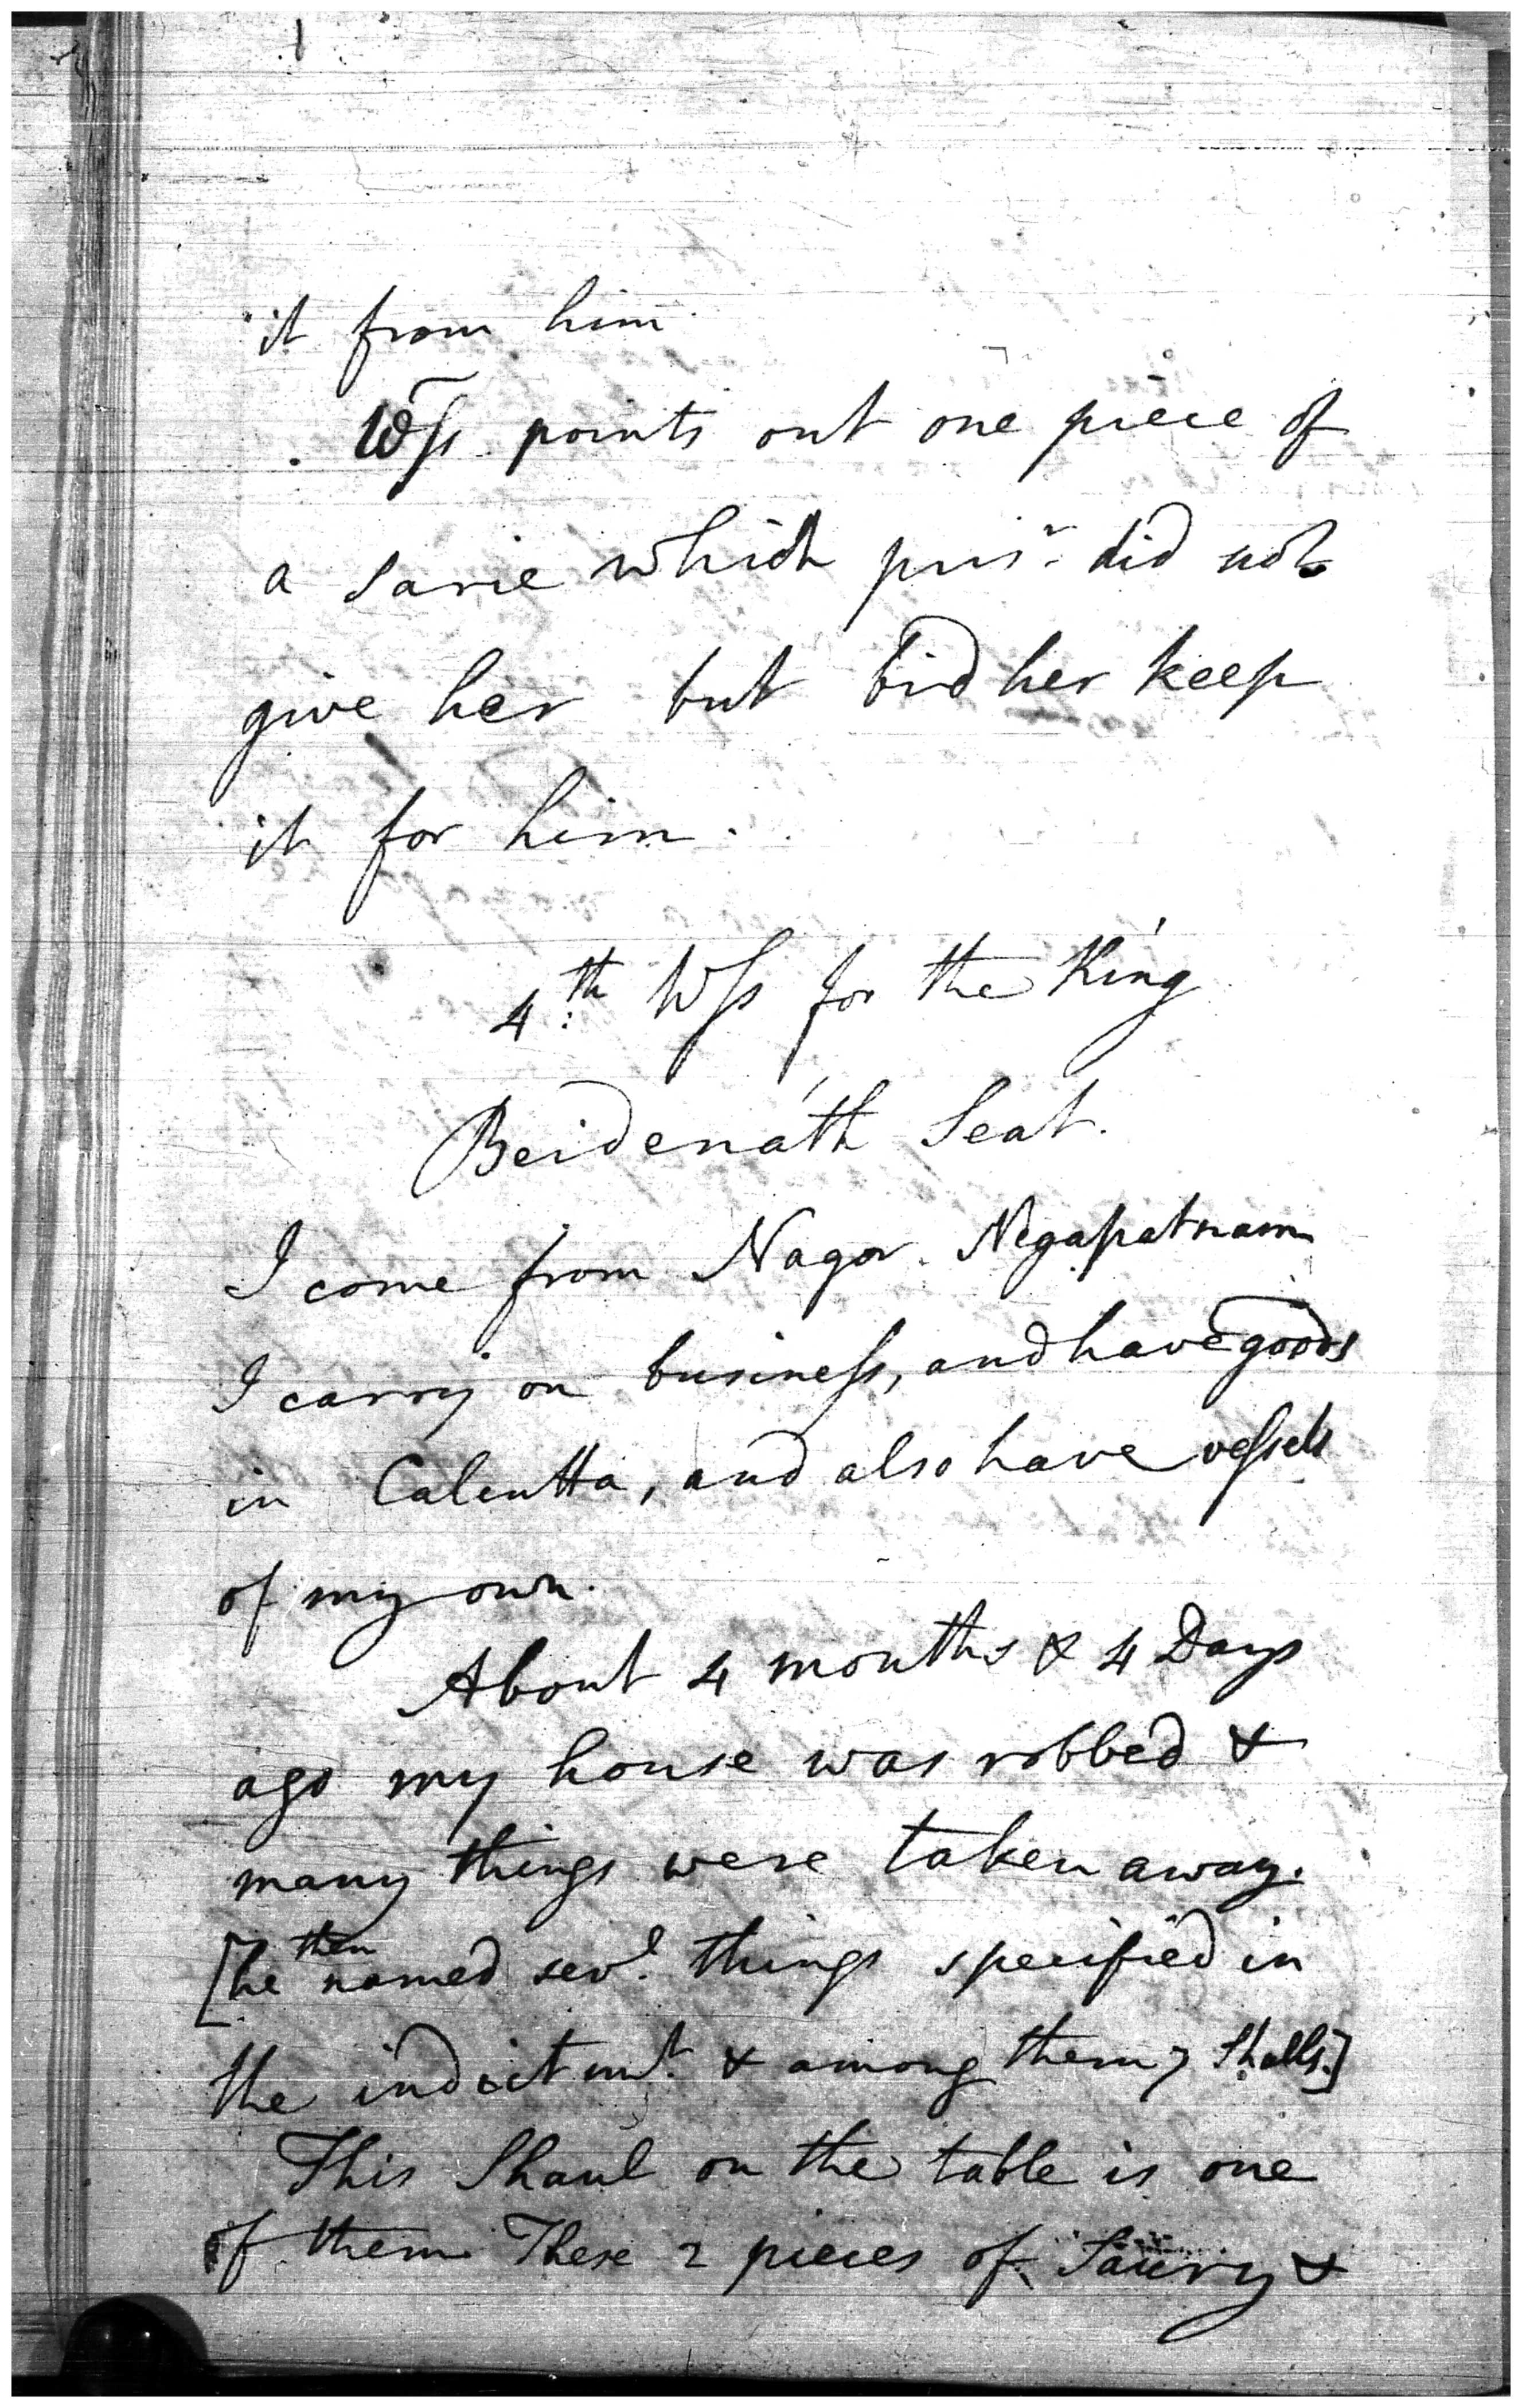 it from him.
Wss points out one piece of
a sarie which prisr. did not
give her but bid her keep
it for him.
4th Wss for the King
Beidenáth Seat.
I come from Nagor. Negapatnam
I carry on business, and have goods
in Calcutta, and also have vessels
of my own.
About 4 months & 4 Days
ago my house was robbed &
many things were taken away.
[he then named sevl. things specified in
the indictmt. & among them 7 Shalls.]
This Shaul on the table is one
of them These 2 pieces of &